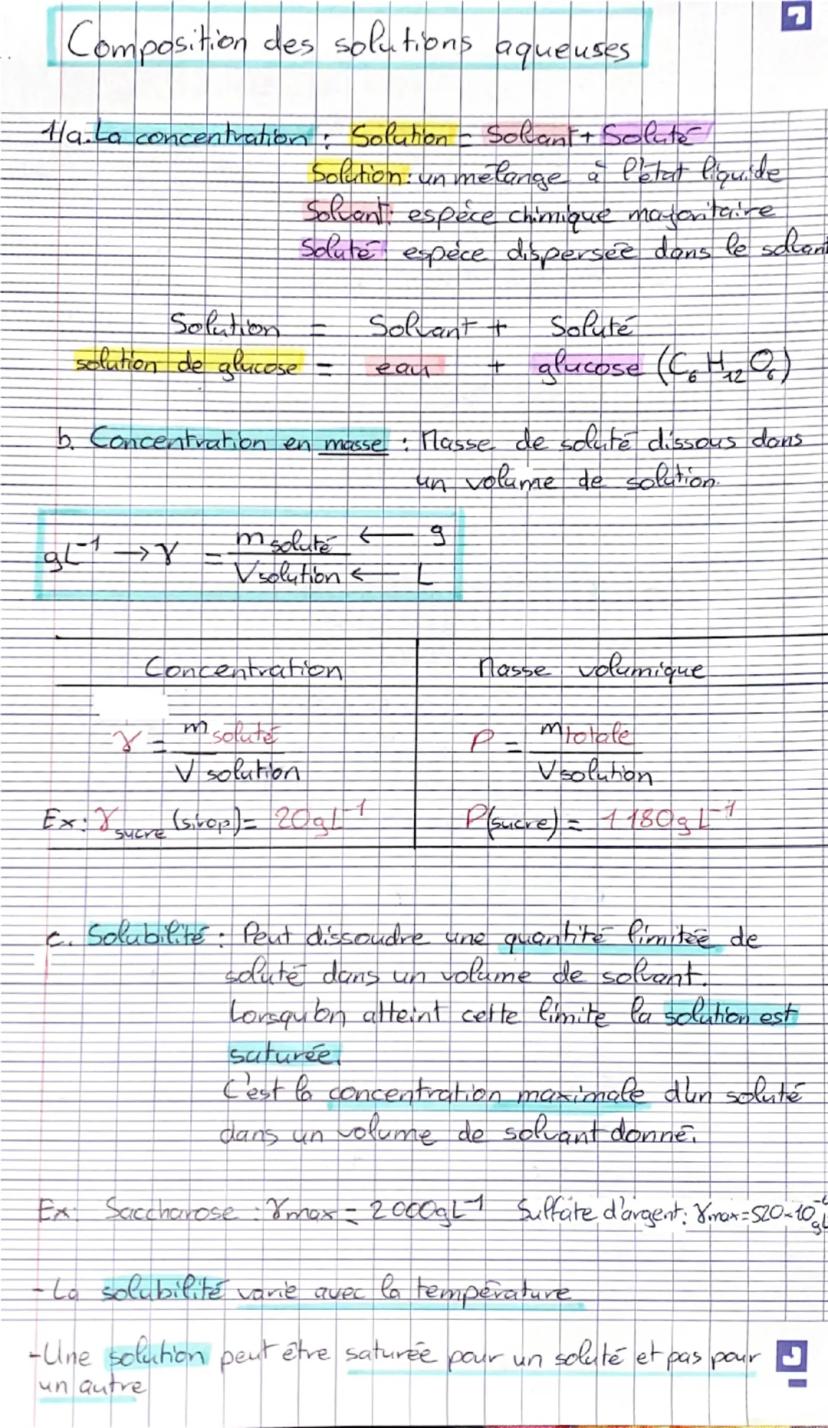 Composition des solutions aqueuses
1/a. La concentration : Solution = Solvant + Soluté
Solution : un mélange à l'état liquide
Solvant : espèce chimique majoritaire
Soluté espèce dispersée dans le solvant
Solution = Solvant + Soluté
solution de glucose = eau + glucose (C₆H₁₂O₆)
b. Concentration en masse : Masse de soluté dissous dans
un volume de solution.
gL⁻¹ → γ = m soluté / V solution ← g ← L
Concentration | Masse volumique
γ = m soluté / V solution | ρ = m totale / V solution
Ex: γ sucre (sirop) = 20gL⁻¹ | ρ(sucre) = 1180gL⁻¹
c. Solubilité : Peut dissoudre une quantité limitée de
soluté dans un volume de solvant.
Lorsqu'on atteint cette limite la solution est
saturée.
C'est la concentration maximale d'un soluté
dans un volume de solvant donné.
Ex: Saccharose : γmax = 2000gL⁻¹ Sulfate d'argent : γmax = 520×10
- La solubilité varie avec la température
- Une solution peut être saturée pour un soluté et pas pour
un autre